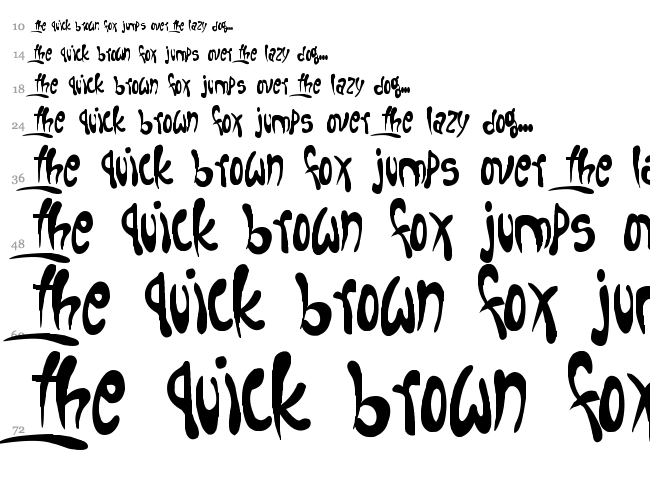 10 the quick brown fox jumps over the lazy dog...
14 the quick brown fox jumps over the lazy dog...
18 the quick brown fox jumps over the lazy dog...
24 the quick brown fox jumps over the lazy dog...
36 the quick brown fox jumps over the la
48 the quick brown fox jumps ov
60 the quick brown fox jum
72 the quick brown fox